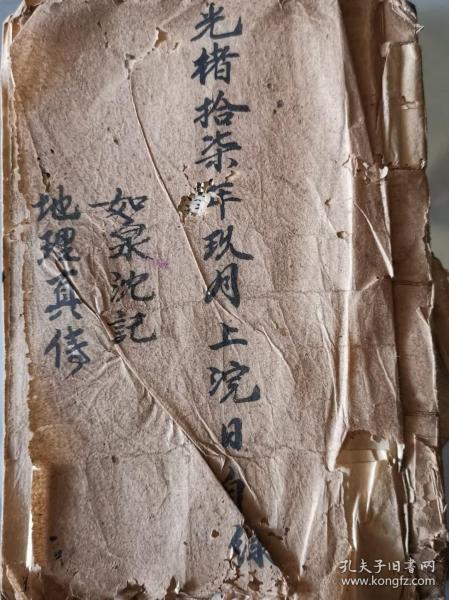 光楮拾柒年玖月上浣日自
如泉沈記
地理真傳
孔夫子旧书网
www.kongfz.com